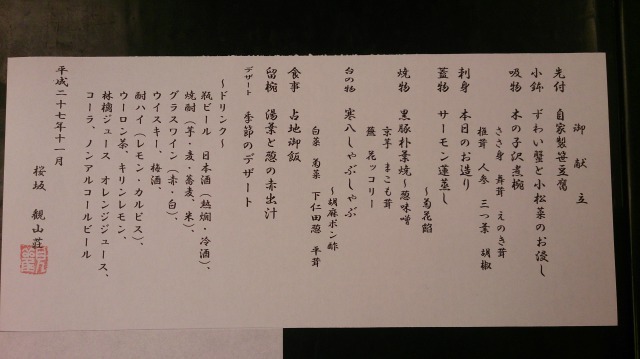 御献立
先付 自家製笹豆腐
小鉢 ずわい蟹と小松菜のお浸し
吸物 木の子沢煮椀
ささ身 舞茸 えのき茸
椎茸 人参 三つ葉 胡椒
刺身 本日のお造り
蓋物 サーモン蓮蒸し
～菊花餡
焼物 黒豚朴葉焼～葱味噌
京芋 まこも茸
蕪 花ッコリー
台の物 寒八しゃぶしゃぶ
～胡麻ポン酢
白菜 菊菜 下仁田葱 平茸
食事 占地御飯
留椀 湯葉と葱の赤出汁
デザート 季節のデザート
～ドリンク～
瓶ビール 日本酒（熱燗・冷酒）、
焼酎（芋・麦・蕎麦、米）、
グラスワイン（赤・白）、
ウイスキー、梅酒、
酎ハイ（レモン・カルピス）、
ウーロン茶、キリンレモン、
林檎ジュース オレンジジュース、
コーラ、ノンアルコールビール
平成二十七年十一月
桜坂 観山荘